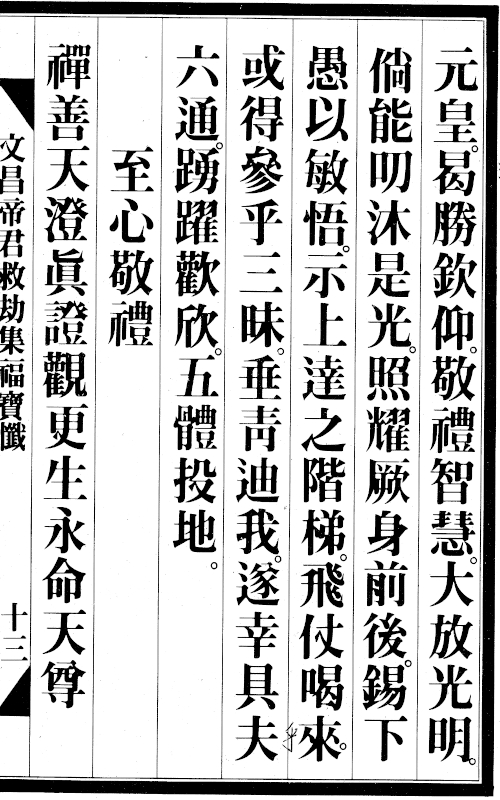 元皇。曷勝欽仰。敬禮智慧。大放光明。
倘能叨沐是光。照耀厥身前後。錫下
愚以敏悟。示上達之階梯。飛仗喝來。
或得參乎三昧。垂靑迪我。遂幸具夫
六通。踴躍歡欣。五體投地。
至心敬禮
禪善天澄眞證觀更生永命天尊
文昌帝君救劫集福寶懺
十三